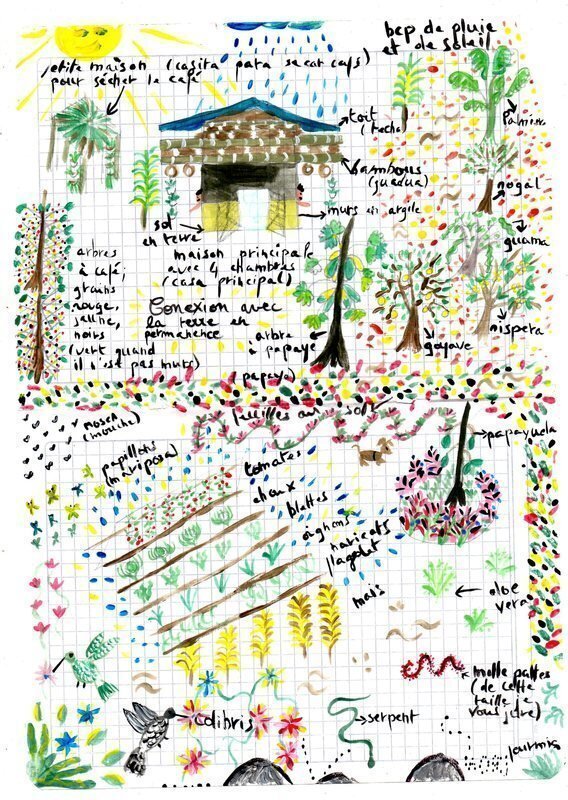 bcp de pluie
et de soleil
petite maison (casita para secar cafe)
pour sécher le café
toit
(techo)
Palmier
bambous
(guadua)
nogal
murs en argile
guama
sol
en terre
maison principale
avec 4 chambres
(casa principal)
arbres
à café;
grains
rouge,
jaune,
noirs
(vert quand
il n'est pas murs)
Conexion avec
la terre en
permanence
arbre
à papaye
(papaya)
goyave
nispera
feuilles au sol
mosca
(mouche)
papayuela
papillons
(mariposa)
tomates
choux
blettes
oighons
haricots
maïs
aloe
vera
mille pattes
(de cette
taille je
vous jure)
colibris
serpent
fourmis